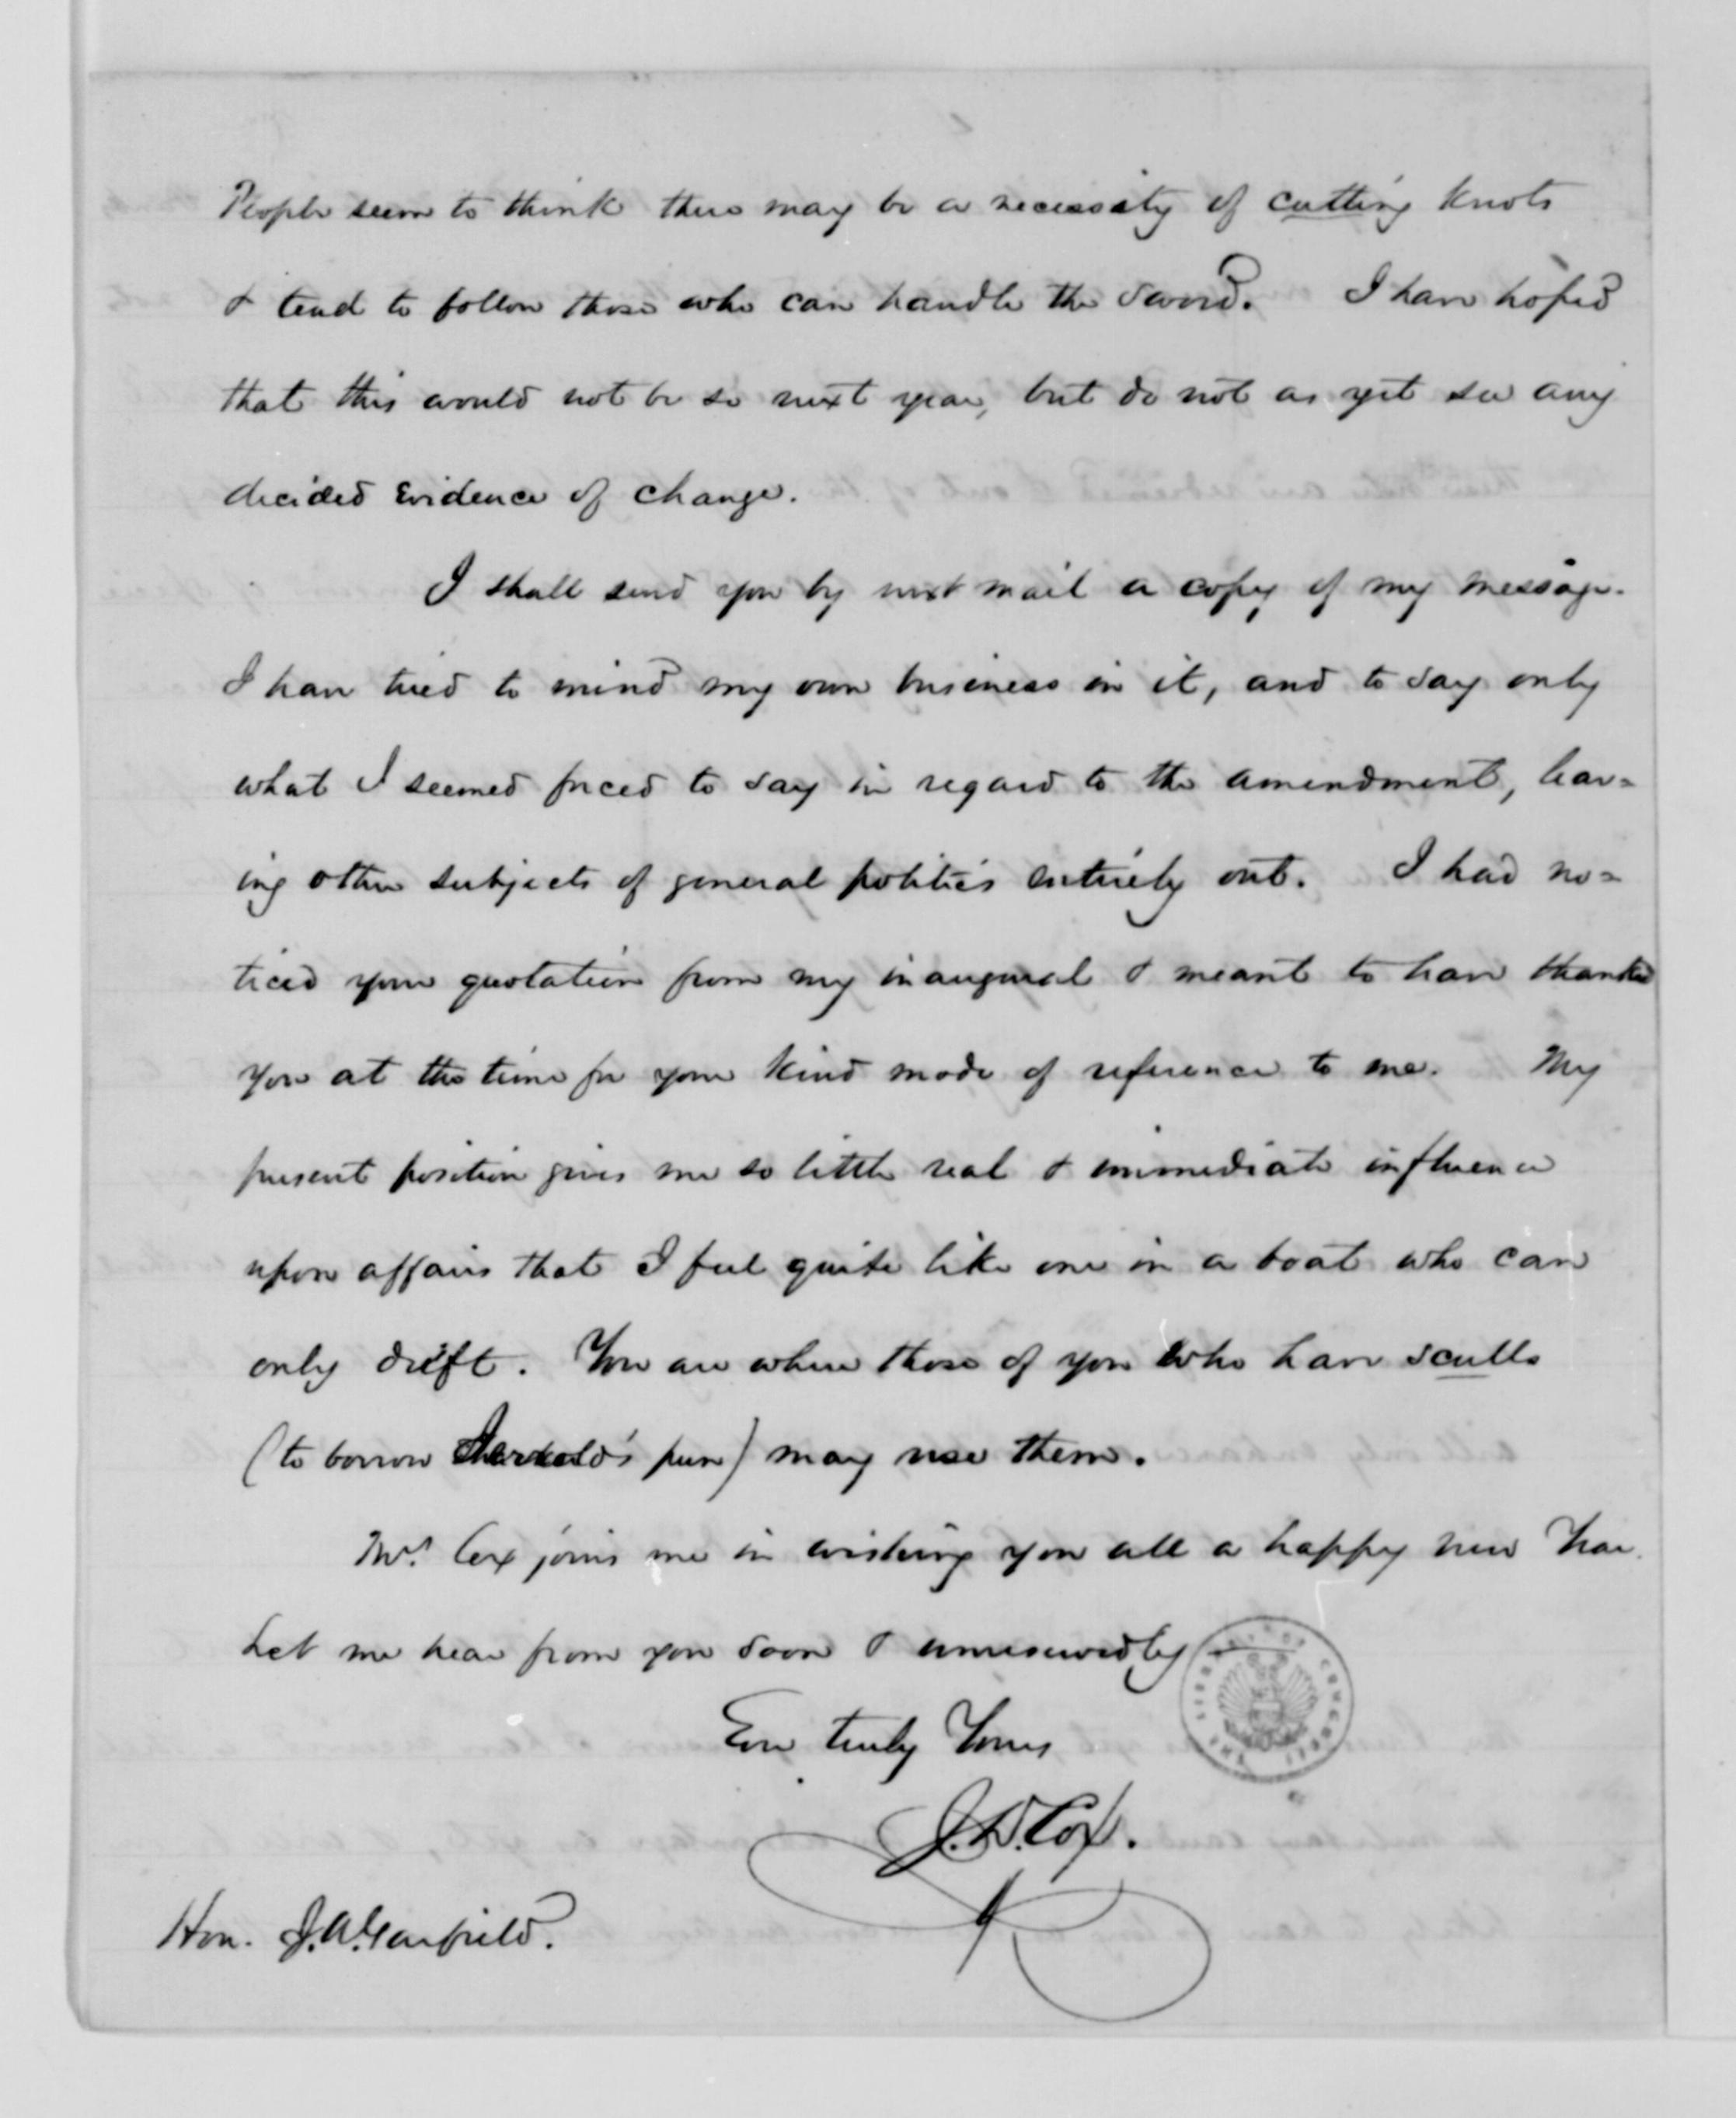 People seem to think there may be a necessity of cutting knots
& tend to follow those who can handle the sword. I have hoped
that this would not be so next year, but do not as yet see any
decided evidence of change.
I shall send you by next mail a copy of my message.
I have tried to mind my own business in it, and to say only
what I seemed forced to say in regard to the amendment, leav=
ing other subjects of general politics entirely out. I had no=
ticed your quotation from my inaugural & meant to have thanked
you at the time for your kind mode of reference to me. My
present position gives me so little real & immediate influence
upon affairs that I feel quite like one in a boat who can
only drift. You are where those of you who have sculls
(to borrow Jerrold's pun) may use them.
Mrs. Cox joins me in wishing you all a happy new Year.
Let me hear from you soon & unreservedly
Ever truly Yours
J. D. Cox.
Hon. J. A. Garfield.